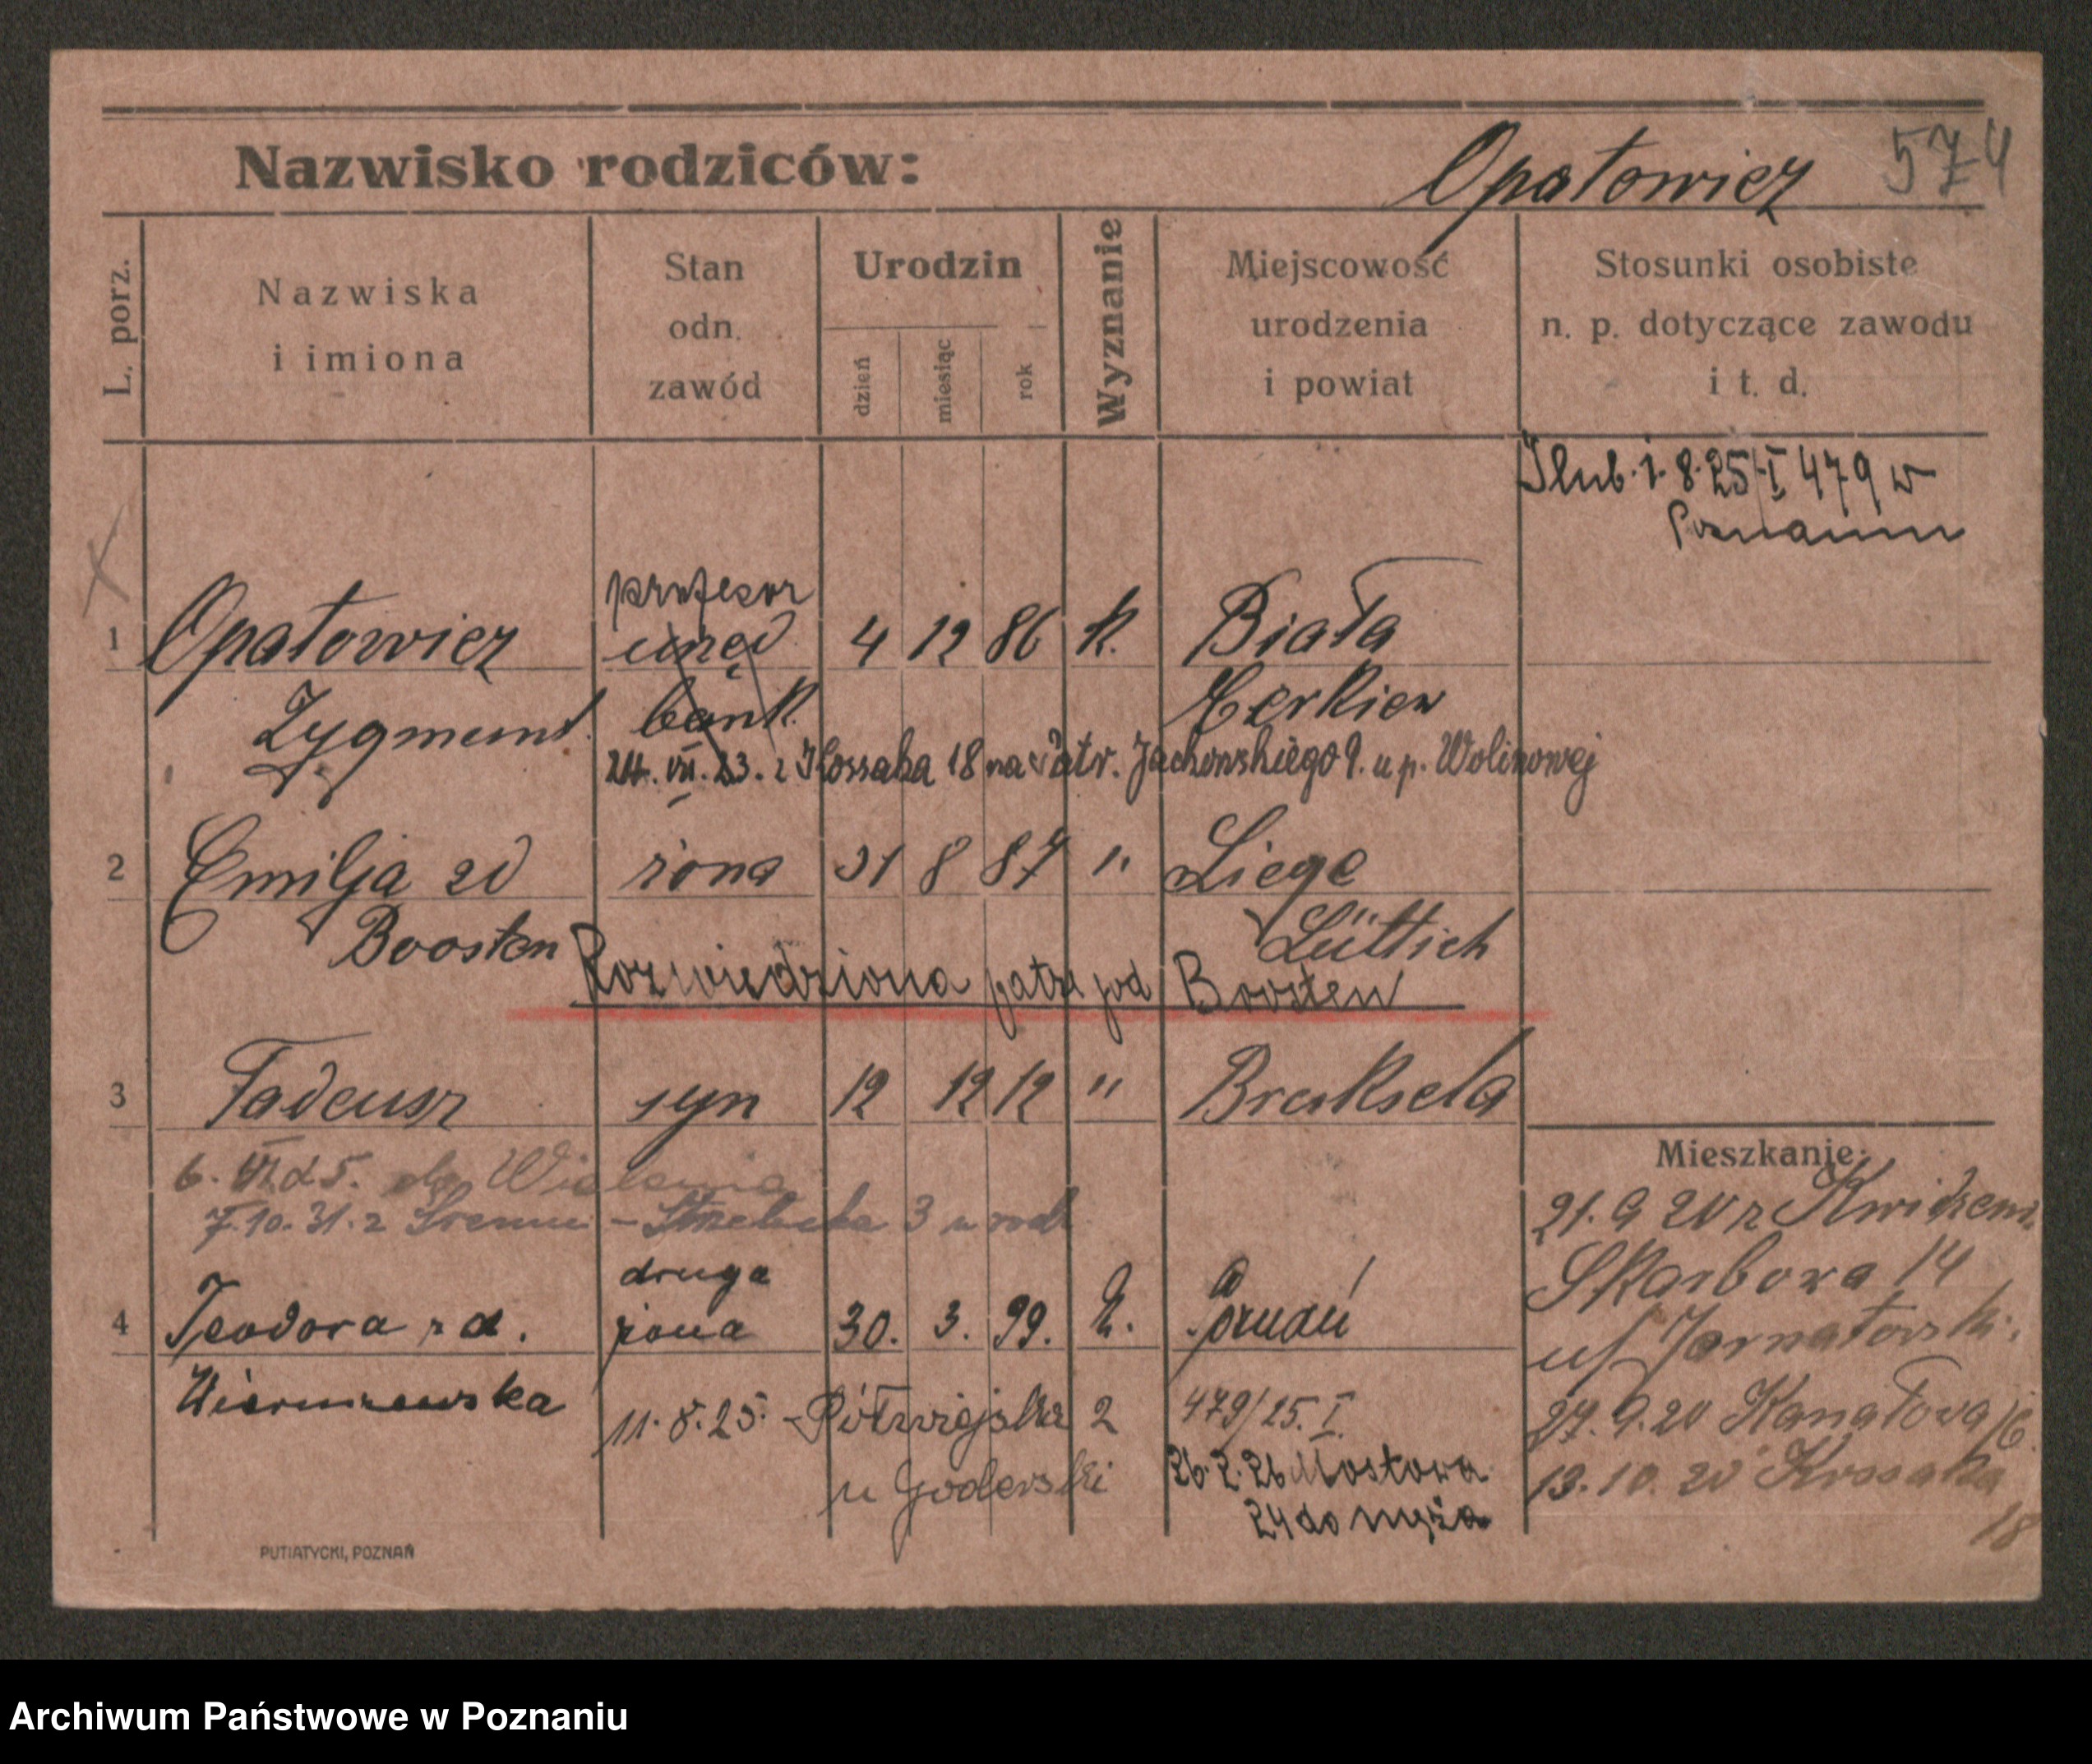 Nazwisko rodziców: Opatowicz 574
L. porz.
Nazwiska
i imiona
Stan
odn.
zawód
Urodzin
dzień
miesiąc
rok
Wyznanie
Miejscowość
urodzenia
i powiat
Stosunki osobiste
n. p. dotyczące zawodu
i t. d.
Ślub. 1. 8. 25/I 479 w
Poznaniu
profesor
1 Opatowicz urzęd 4 12 86 k. Biała
Zygmunt. bank.
24. VII. 23. z Kossaka 18 na Jachowskiego 9. u p. Wolinowej
2 Emilja zd żona 31 8 87 " Liege
Boosten Lüttich
Rozwiedziona patrz pod Boosten
3 Tadeusz syn 12 12 12 " Bruksela
Mieszkanie:
6. VI 25. do Wielenia
7.10.31. z Śremu - Strzelecka 3 u
21. 9 20 z Kwidzenia
Skarbowa 14
druga
4 Teodora z d. żona 30. 3. 99. k. Poznań
u/ Jarnatowski.
Wieruszewska
11. 8. 25. - Półwiejska 2
u Goderski
479/25. I.
26. 2. 26 Mostowa
24 do męża
27. 9. 20 Kanałowa 16.
13. 10. 20 Kossaka
18
PUTIATYCKI, POZNAŃ
Archiwum Państwowe w Poznaniu